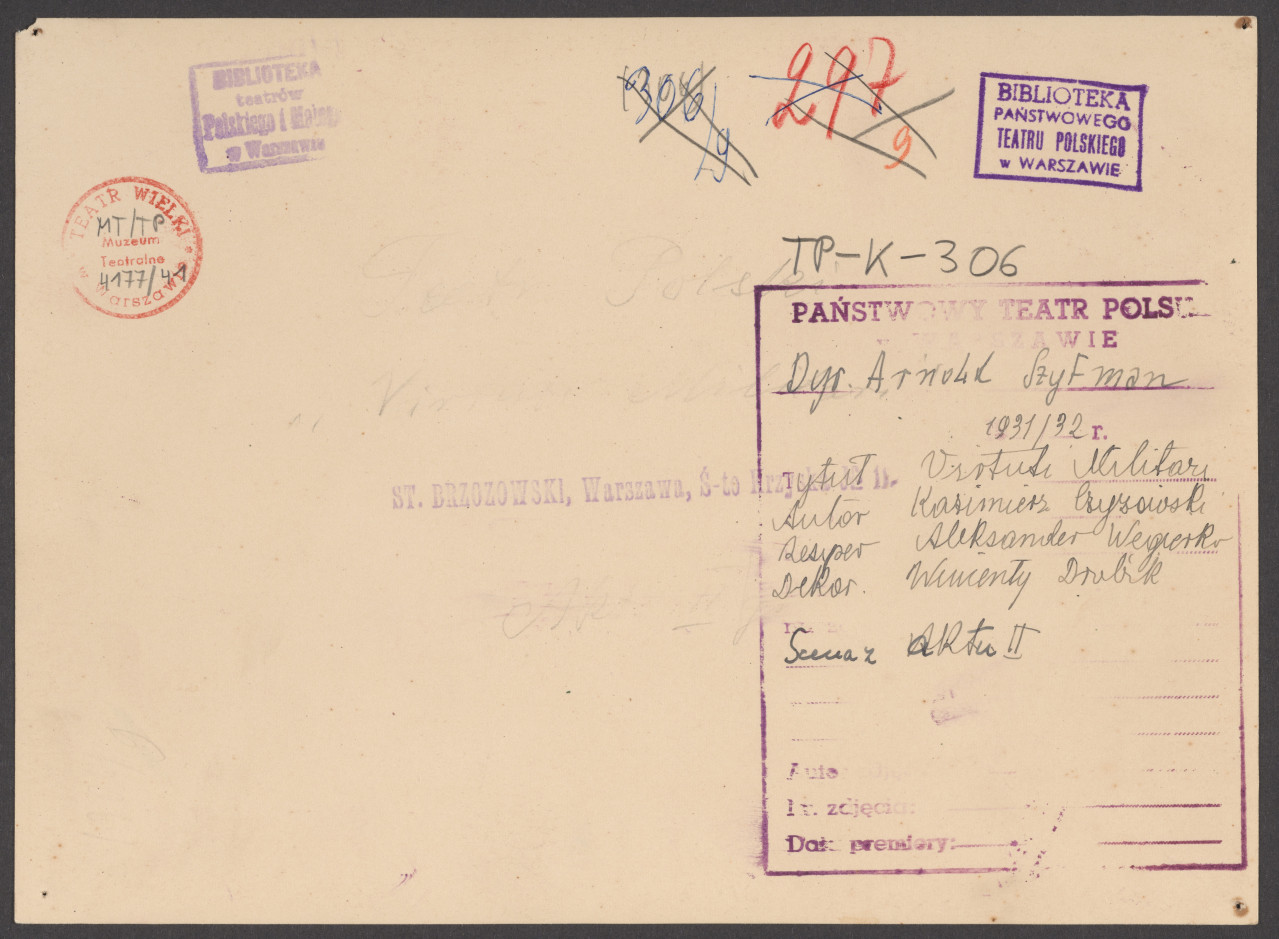 BIBLIOTEKA
teatrów
Polskiego i Małego
w Warszawie
306/9
297
9
BIBLIOTEKA
PAŃSTWOWEGO
TEATRU POLSKIEGO
w WARSZAWIE
TEATR WIELKI
MT/TP
Muzeum
Teatralne
4177/41
w Warszawie
Teatr Polski
TP-K-306
PAŃSTWOWY TEATR POLSKI
w WARSZAWIE
Dyr. Arnold Szyfman
1931/32 r.
Tytuł Virtuti Militari
Autor Kazimierz Czyżowski
Reżyser Aleksander Węgierko
Dekor. Wincenty Drabik
ST. BRZOZOWSKI, Warszawa, Ś-to Krzyska №
Akt II
Scena z Aktu II
Nr. zdjęcia:
Data premiery: